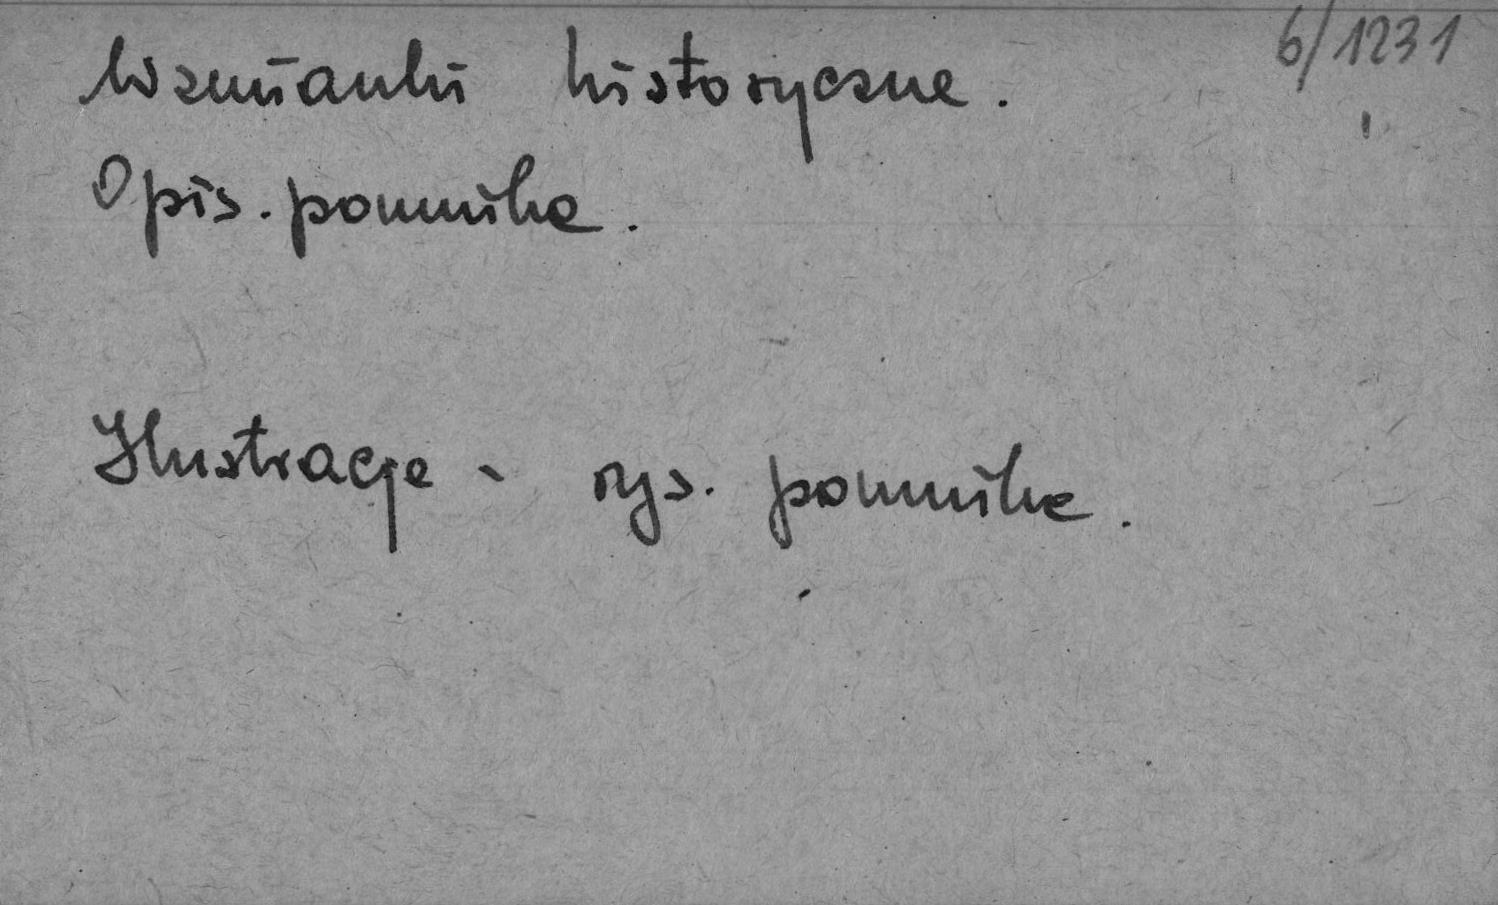 6/1231
Wzmianki historyczne.
Opis. pomnika.
Ilustracje - rys. pomnika.